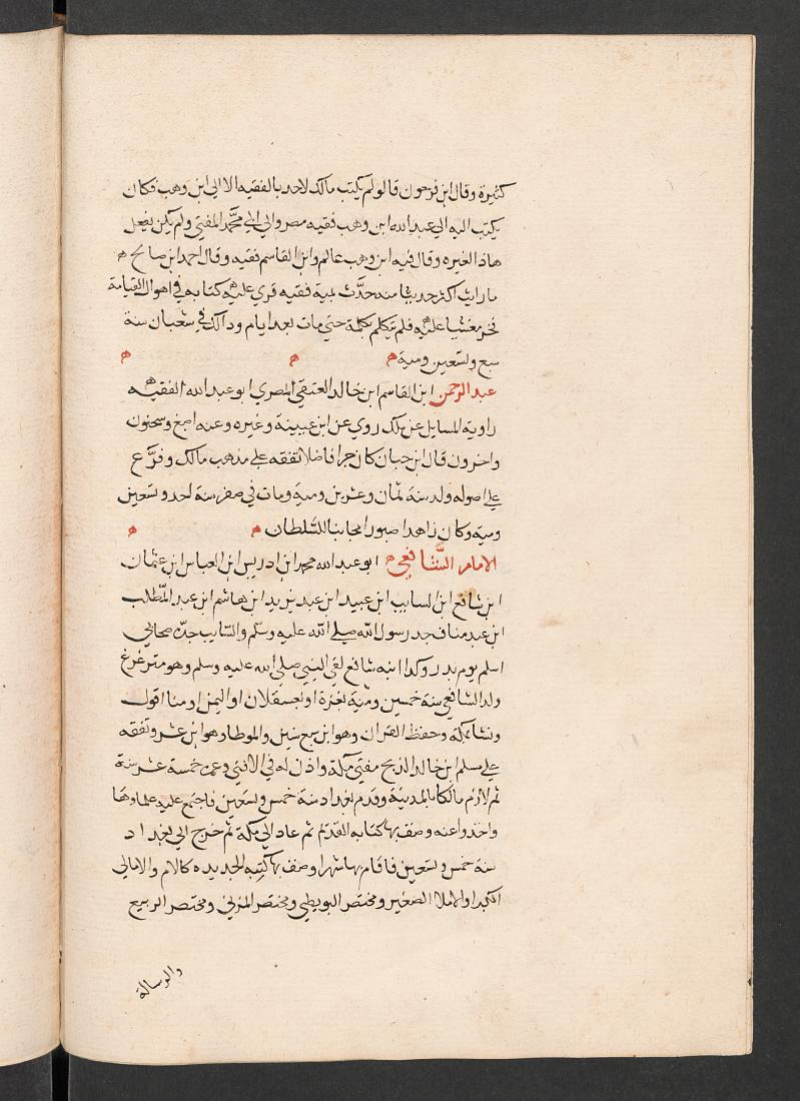 كثيرة وقال ابن فرحون قالو لم يكتب مالك لاحد بالفقيه الا الي ابن وهب فكان
يكتب اليه الي عبد الله ابن وهب فقيه مصر والي ابي محمد المفتي ولم يكن يفعل
هاذا لغيره وقال فيه ابن وهب عالم وابن القاسم فقيه وقال احمد ابن صالح
ما رايت اكثر حديثا منه حدث بمية فقيه قري عليه كتابه في اهوال القيامة
فخر مغشيا عليه فلم يتكلم بكلمة حتي مات بعد ايام وذالك في شعبان سنة
سبع وتسعين ومية
عبد الرحمن ابن القاسم ابن خالد العتقي المصري ابو عبد الله الفقيه
راوية المسايل عن ملك روي عن ابن عيينة وغيره وعنه اصبغ وسحنون
واخرون قال ابن حبان كان حبرا فاضلا تفقه علي مذهب مالك وفرع
علي اصوله ولد سنة ثمان وعشرين ومية ومات في صفر سنة احد وتسعين
ومية وكان زاهدا صبورا مجانبا للسلطان
الامام الشافعي ابو عبد الله محمد ابن ادريس ابن العباس ابن عثمان
ابن شافع ابن السايب ابن عبيد ابن عبد يزيد ابن هاشم ابن عبد المطلب
ابن عبد مناف جد رسول الله صلي الله عليه وسلم والسايب جده صحابي
اسلم يوم بدر وكذا ابنه شافع لقي النبي صلي الله عليه وسلم وهو مترعرع
ولد الشافعي سنة خمسين ومية بغزة او بعسقلان او اليمن او منا اقول
ونشا بمكة وحفظ القران وهو ابن سبع سنين والموطا وهو ابن عشر وتفقه
علي مسلم ابن خالد الزنجي مفتي مكة واذن له في الافتي وعمره خمسة عشر سنة
ثم لازم مالكا بالمدينة وقدم بغداد سنة خمس وتسعين فاجتمع عليه علماوها
واخذوا عنه وصنف بها كتابه القديم ثم عاد الي مكة ثم خرج الي بغداد
سنة خمس وتسعين فاقام بها شهرا وصنف بها كتبه الجديده كالام والامالي
الكبرا والاملا الصغير ومختصر البويطي ومختصر المزني ومختصر الربيع
والرسالة